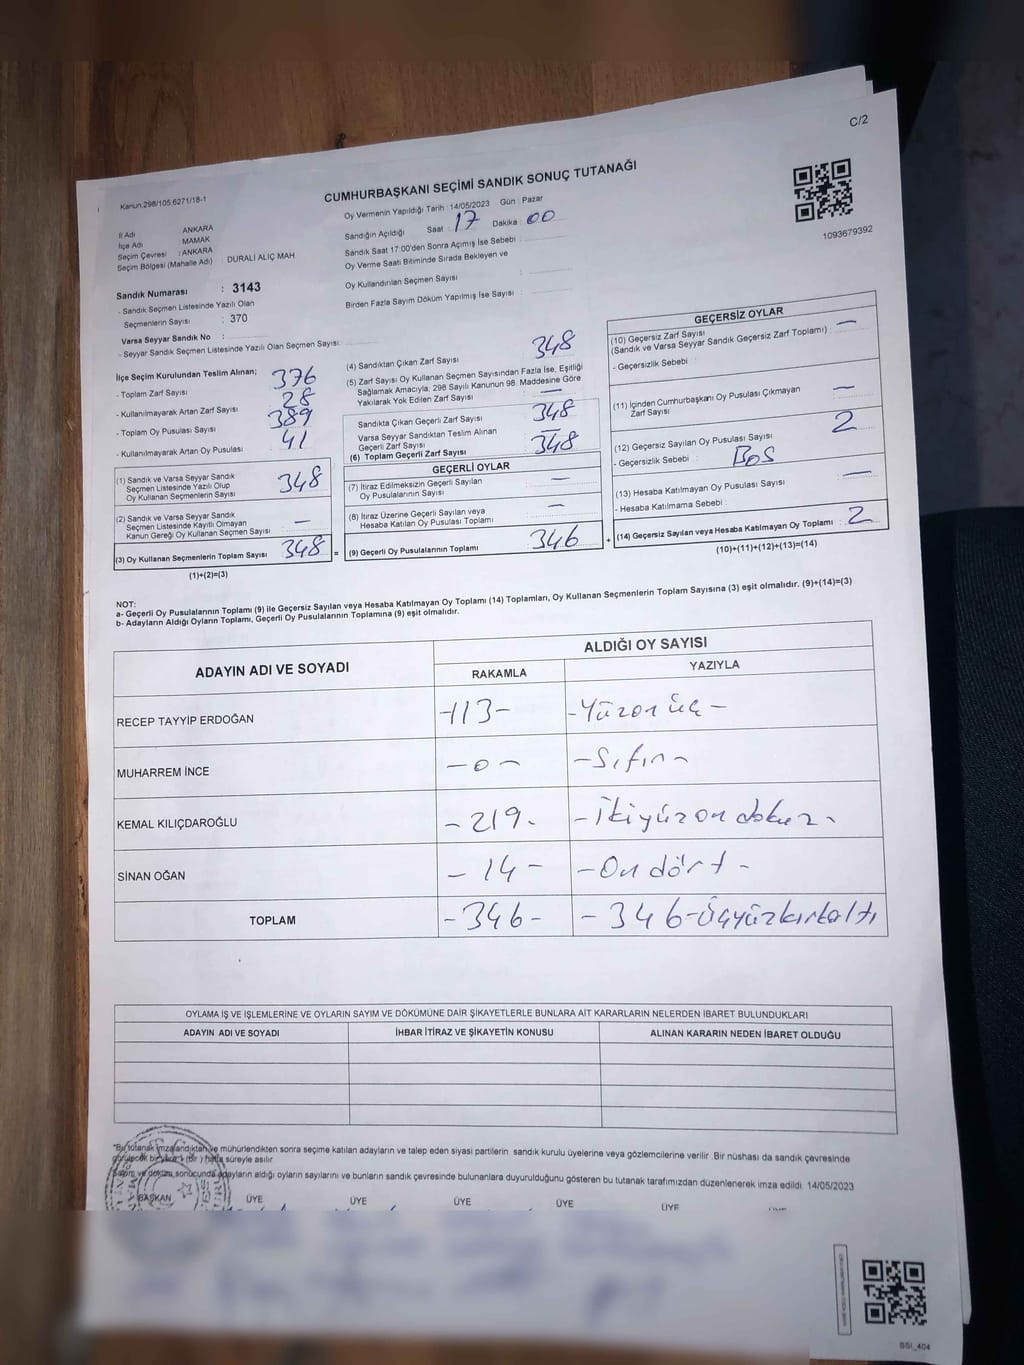 C/2
Kanun.298/105.6271/18-1
CUMHURBAŞKANI SEÇİMİ SANDIK SONUÇ TUTANAĞI
1093679392
İl Adı ANKARA
İlçe Adı MAMAK
Seçim Çevresi : ANKARA
Seçim Bölgesi (Mahalle Adı) DURALİ ALIÇ MAH
Sandık Numarası : 3143
- Sandık Seçmen Listesinde Yazılı Olan
Seçmenlerin Sayısı : 370
Varsa Seyyar Sandık No :
- Seyyar Sandık Seçmen Listesinde Yazılı Olan Seçmen Sayısı:
Oy Vermenin Yapıldığı Tarih : 14/05/2023 Gün : Pazar
Sandığın Açıldığı Saat : 17 Dakika : 00
Sandık Saat 17:00'den Sonra Açımış İse Sebebi :
Oy Verme Saati Bitiminde Sırada Bekleyen ve
Oy Kullandırılan Seçmen Sayısı :
Birden Fazla Sayım Döküm Yapılmış İse Sayısı :
İlçe Seçim Kurulundan Teslim Alınan;
- Toplam Zarf Sayısı 376
- Kullanılmayarak Artan Zarf Sayısı 28
- Toplam Oy Pusulası Sayısı 389
- Kullanılmayarak Artan Oy Pusulası 41
(1) Sandık ve Varsa Seyyar Sandık
Seçmen Listesinde Yazılı Olup
Oy Kullanan Seçmenlerin Sayısı 348
(2) Sandık ve Varsa Seyyar Sandık
Seçmen Listesinde Kayıtlı Olmayan
Kanun Gereği Oy Kullanan Seçmen Sayısı —
(3) Oy Kullanan Seçmenlerin Toplam Sayısı 348 =
(1)+(2)=(3)
(4) Sandıktan Çıkan Zarf Sayısı 348
(5) Zarf Sayısı Oy Kullanan Seçmen Sayısından Fazla İse, Eşitliği
Sağlamak Amacıyla, 298 Sayılı Kanunun 98. Maddesine Göre
Yakılarak Yok Edilen Zarf Sayısı —
Sandıkta Çıkan Geçerli Zarf Sayısı 348
Varsa Seyyar Sandıktan Teslim Alınan
Geçerli Zarf Sayısı —
(6) Toplam Geçerli Zarf Sayısı 348
GEÇERLİ OYLAR
(7) İtiraz Edilmeksizin Geçerli Sayılan
Oy Pusulalarının Sayısı —
(8) İtiraz Üzerine Geçerli Sayılan veya
Hesaba Katılan Oy Pusulası Toplamı —
(9) Geçerli Oy Pusulalarının Toplamı 346 +
GEÇERSİZ OYLAR
(10) Geçersiz Zarf Sayısı
(Sandık ve Varsa Seyyar Sandık Geçersiz Zarf Toplamı) : —
- Geçersizlik Sebebi :
(11) İçinden Cumhurbaşkanı Oy Pusulası Çıkmayan
Zarf Sayısı —
(12) Geçersiz Sayılan Oy Pusulası Sayısı 2
- Geçersizlik Sebebi : BOS
(13) Hesaba Katılmayan Oy Pusulası Sayısı —
- Hesaba Katılmama Sebebi :
(14) Geçersiz Sayılan veya Hesaba Katılmayan Oy Toplamı : 2
(10)+(11)+(12)+(13)=(14)
NOT:
a- Geçerli Oy Pusulalarının Toplamı (9) ile Geçersiz Sayılan veya Hesaba Katılmayan Oy Toplamı (14) Toplamları, Oy Kullanan Seçmenlerin Toplam Sayısına (3) eşit olmalıdır. (9)+(14)=(3)
b- Adayların Aldığı Oyların Toplamı, Geçerli Oy Pusulalarının Toplamına (9) eşit olmalıdır.
ADAYIN ADI VE SOYADI ALDIĞI OY SAYISI
RAKAMLA YAZIYLA
RECEP TAYYİP ERDOĞAN -113- -Yüzonüç-
MUHARREM İNCE -0- -Sıfır-
KEMAL KILIÇDAROĞLU -219- -İkiyüzondokuz-
SİNAN OĞAN -14- -Ondört-
TOPLAM -346- -346-Üçyüzkırkaltı
OYLAMA İŞ VE İŞLEMLERİNE VE OYLARIN SAYIM VE DÖKÜMÜNE DAİR ŞİKAYETLERLE BUNLARA AİT KARARLARIN NELERDEN İBARET BULUNDUKLARI
ADAYIN ADI VE SOYADI İHBAR İTİRAZ VE ŞİKAYETİN KONUSU ALINAN KARARIN NEDEN İBARET OLDUĞU
*Bu tutanak imzalandıktan ve mühürlendikten sonra seçime katılan adayların ve talep eden siyasi partilerin sandık kurulu üyelerine veya gözlemcilerine verilir. Bir nüshası da sandık çevresinde
görülecek bir yere 1 (bir) hafta süreyle asılır
Sayım ve döküm sonucunda adayların aldığı oyların sayılarını ve bunların sandık çevresinde bulunanlara duyurulduğunu gösteren bu tutanak tarafımızdan düzenlenerek imza edildi. 14/05/2023
BAŞKAN ÜYE ÜYE ÜYE ÜYE ÜYE